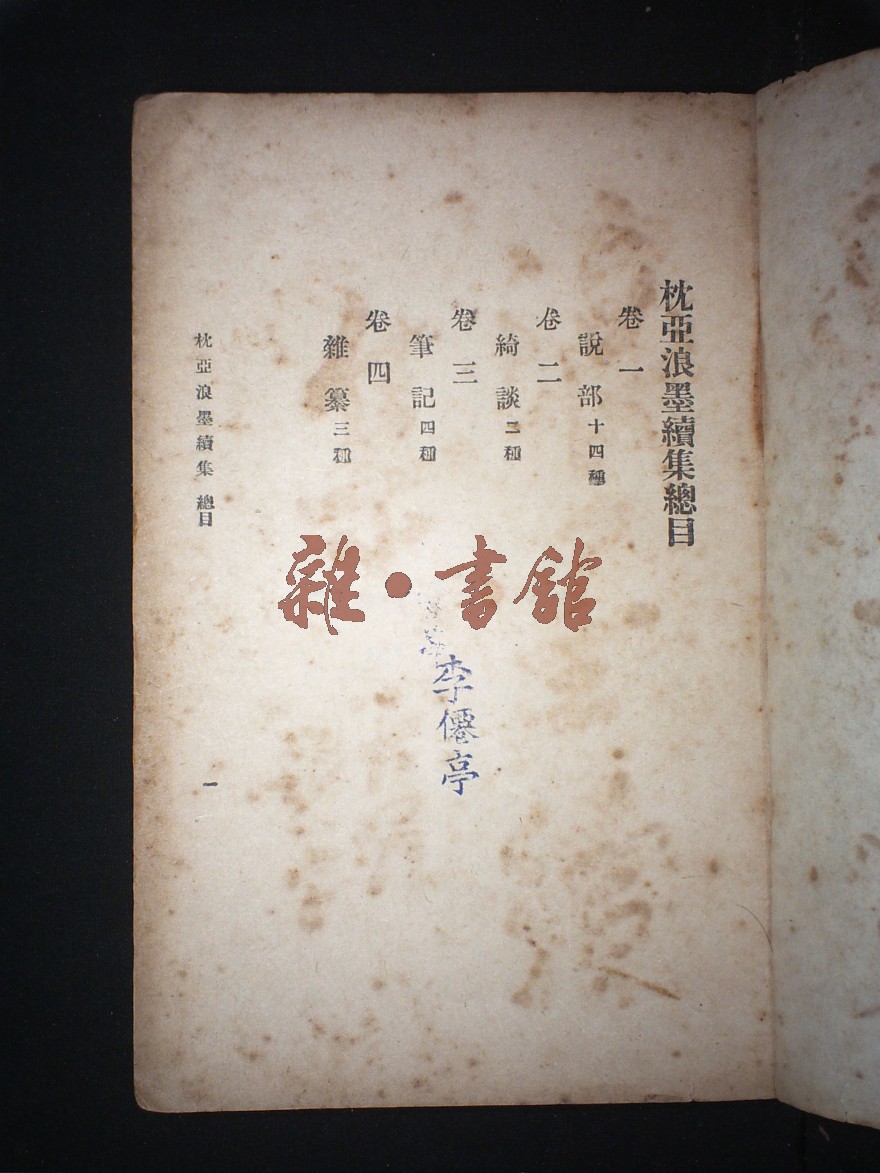 枕亞浪墨續集總目
卷一
說部十四種
卷二
綺談二種
卷三
筆記四種
卷四
雜纂三種
枕亞浪墨續集 總目
一
雜·書館
李僊亭